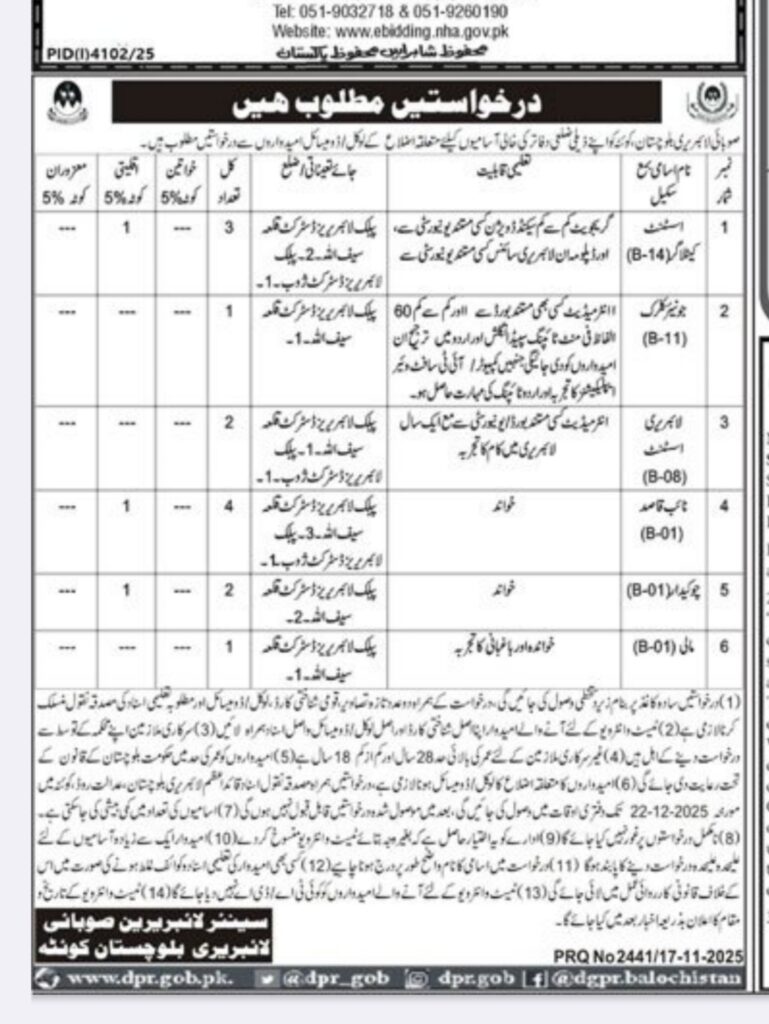 Tel: 051-9032718 & 051-9260190
Website: www.ebidding.nha.gov.pk
محفوظ شاہراہیں محفوظ پاکستان
PID(I)4102/25
درخواستیں مطلوب ہیں
صوبائی لائبریری بلوچستان، کوئٹہ کو اپنے ذیلی ضلعی دفاتر کی خالی آسامیوں کیلئے متعلقہ اضلاع کے لوکل/ڈومیسائل امیدواروں سے درخواستیں مطلوب ہیں۔
نمبر شمار | نام اسامی بمع سکیل | تعلیمی قابلیت | جائے تعیناتی/ضلع | کل تعداد | خواتین کوٹہ 5% | اقلیتی کوٹہ 5% | معزوران کوٹہ 5%
1 | اسٹنٹ | گریجویٹ کم سے کم سیکنڈ ڈویژن کسی مستند یونیورسٹی سے، | پبلک لائبریریز ڈسٹرکٹ قلعہ | 3 | --- | 1 | ---
کیٹلاگر (B-14) | اور ڈپلومہ ان لائبریری سائنس کسی مستند یونیورسٹی سے | سیف اللہ۔2۔ پبلک
لائبریریز ڈسٹرکٹ ژوب۔1۔
2 | جونیئر کلرک | انٹرمیڈیٹ کسی بھی مستند بورڈ سے اور کم سے کم 60 | پبلک لائبریریز ڈسٹرکٹ قلعہ | 1 | --- | --- | ---
(B-11) | الفاظ فی منٹ ٹائپنگ سپیڈ انگلش اور اردو میں ترجیح ان | سیف اللہ۔1۔
امیدواروں کو دی جائیگی جنہیں کمپیوٹر/آئی ٹی سافٹ وئیر
اپلیکیشنز کا تجربہ اور اردو ٹائپنگ کی مہارت حاصل ہو۔
3 | لائبریری | انٹرمیڈیٹ کسی مستند بورڈ/یونیورسٹی سے مع ایک سال | پبلک لائبریریز ڈسٹرکٹ قلعہ | 2 | --- | --- | ---
اسٹنٹ | لائبریری میں کام کا تجربہ | سیف اللہ۔1۔ پبلک
(B-08) | لائبریریز ڈسٹرکٹ ژوب۔1۔
4 | نائب قاصد | خواندہ | پبلک لائبریریز ڈسٹرکٹ قلعہ | 4 | --- | 1 | ---
(B-01) | سیف اللہ۔3۔ پبلک
لائبریریز ڈسٹرکٹ ژوب۔1۔
5 | چوکیدار (B-01) | خواندہ | پبلک لائبریریز ڈسٹرکٹ قلعہ | 2 | --- | 1 | ---
سیف اللہ۔2۔
6 | مالی (B-01) | خواندہ اور باغبانی کا تجربہ | پبلک لائبریریز ڈسٹرکٹ قلعہ | 1 | --- | --- | ---
سیف اللہ۔1۔
(1) درخواستیں سادہ کاغذ پر بنام زیر دستخطی وصول کی جائیں گی، درخواست کے ہمراہ دو عدد تازہ تصاویر، قومی شناختی کارڈ، لوکل/ڈومیسائل اور مطلوبہ تعلیمی اسناد کی مصدقہ نقول منسلک
کرنا لازمی ہے (2) ٹیسٹ وانٹرویو کے لئے آنے والے امیدوار اپنا اصل شناختی کارڈ اور اصل لوکل/ڈومیسائل واصل اسناد ہمراہ لائیں (3) سرکاری ملازمین اپنے محکمہ کے توسط سے
درخواست دینے کے اہل ہیں (4) غیر سرکاری ملازمین کے لئے عمر کی بالائی حد 28 سال اور کم از کم 18 سال ہے (5) امیدواروں کو عمر کی حد میں حکومت بلوچستان کے قانون کے
تحت رعایت دی جائے گی (6) امیدواروں کا متعلقہ اضلاع کا لوکل/ڈومیسائل ہونا لازمی ہے، درخواستیں ہمراہ مصدقہ نقول اسناد قائد اعظم لائبریری بلوچستان، عدالت روڈ، کوئٹہ میں
مورخہ 22-12-2025 تک دفتری اوقات میں وصول کی جائیں گی، بعد میں موصول شدہ درخواستیں قابل قبول نہیں ہوں گی (7) اسامیوں کی تعداد میں کمی بیشی کی جاسکتی ہے۔
(8) نامکمل درخواستوں پر غور نہیں کیا جائے گا (9) ادارے کو یہ اختیار حاصل ہے کہ بغیر وجہ بتائے ٹیسٹ وانٹرویو منسوخ کر دے (10) امیدوار ایک سے زیادہ آسامیوں کے لئے
علیحدہ علیحدہ درخواست دینے کا پابند ہوگا (11) درخواست میں اسامی کا نام واضح طور پر درج ہونا چاہیے (12) کسی بھی امیدوار کی تعلیمی اسناد کوائف غلط ہونے کی صورت میں اس
کے خلاف قانونی کارروائی عمل میں لائی جائے گی (13) ٹیسٹ وانٹرویو کے لئے آنے والے امیدواروں کو کوئی ٹی اے/ڈی اے نہیں دیا جائے گا (14) ٹیسٹ وانٹرویو کے تاریخ و
مقام کا اعلان بذریعہ اخبار بعد میں کیا جائے گا۔
سینئر لائبریرین صوبائی
لائبریری بلوچستان کوئٹہ
PRQ No 2441/17-11-2025
www.dpr.gob.pk. @dpr_gob dpr.gob @dgpr.balochistan